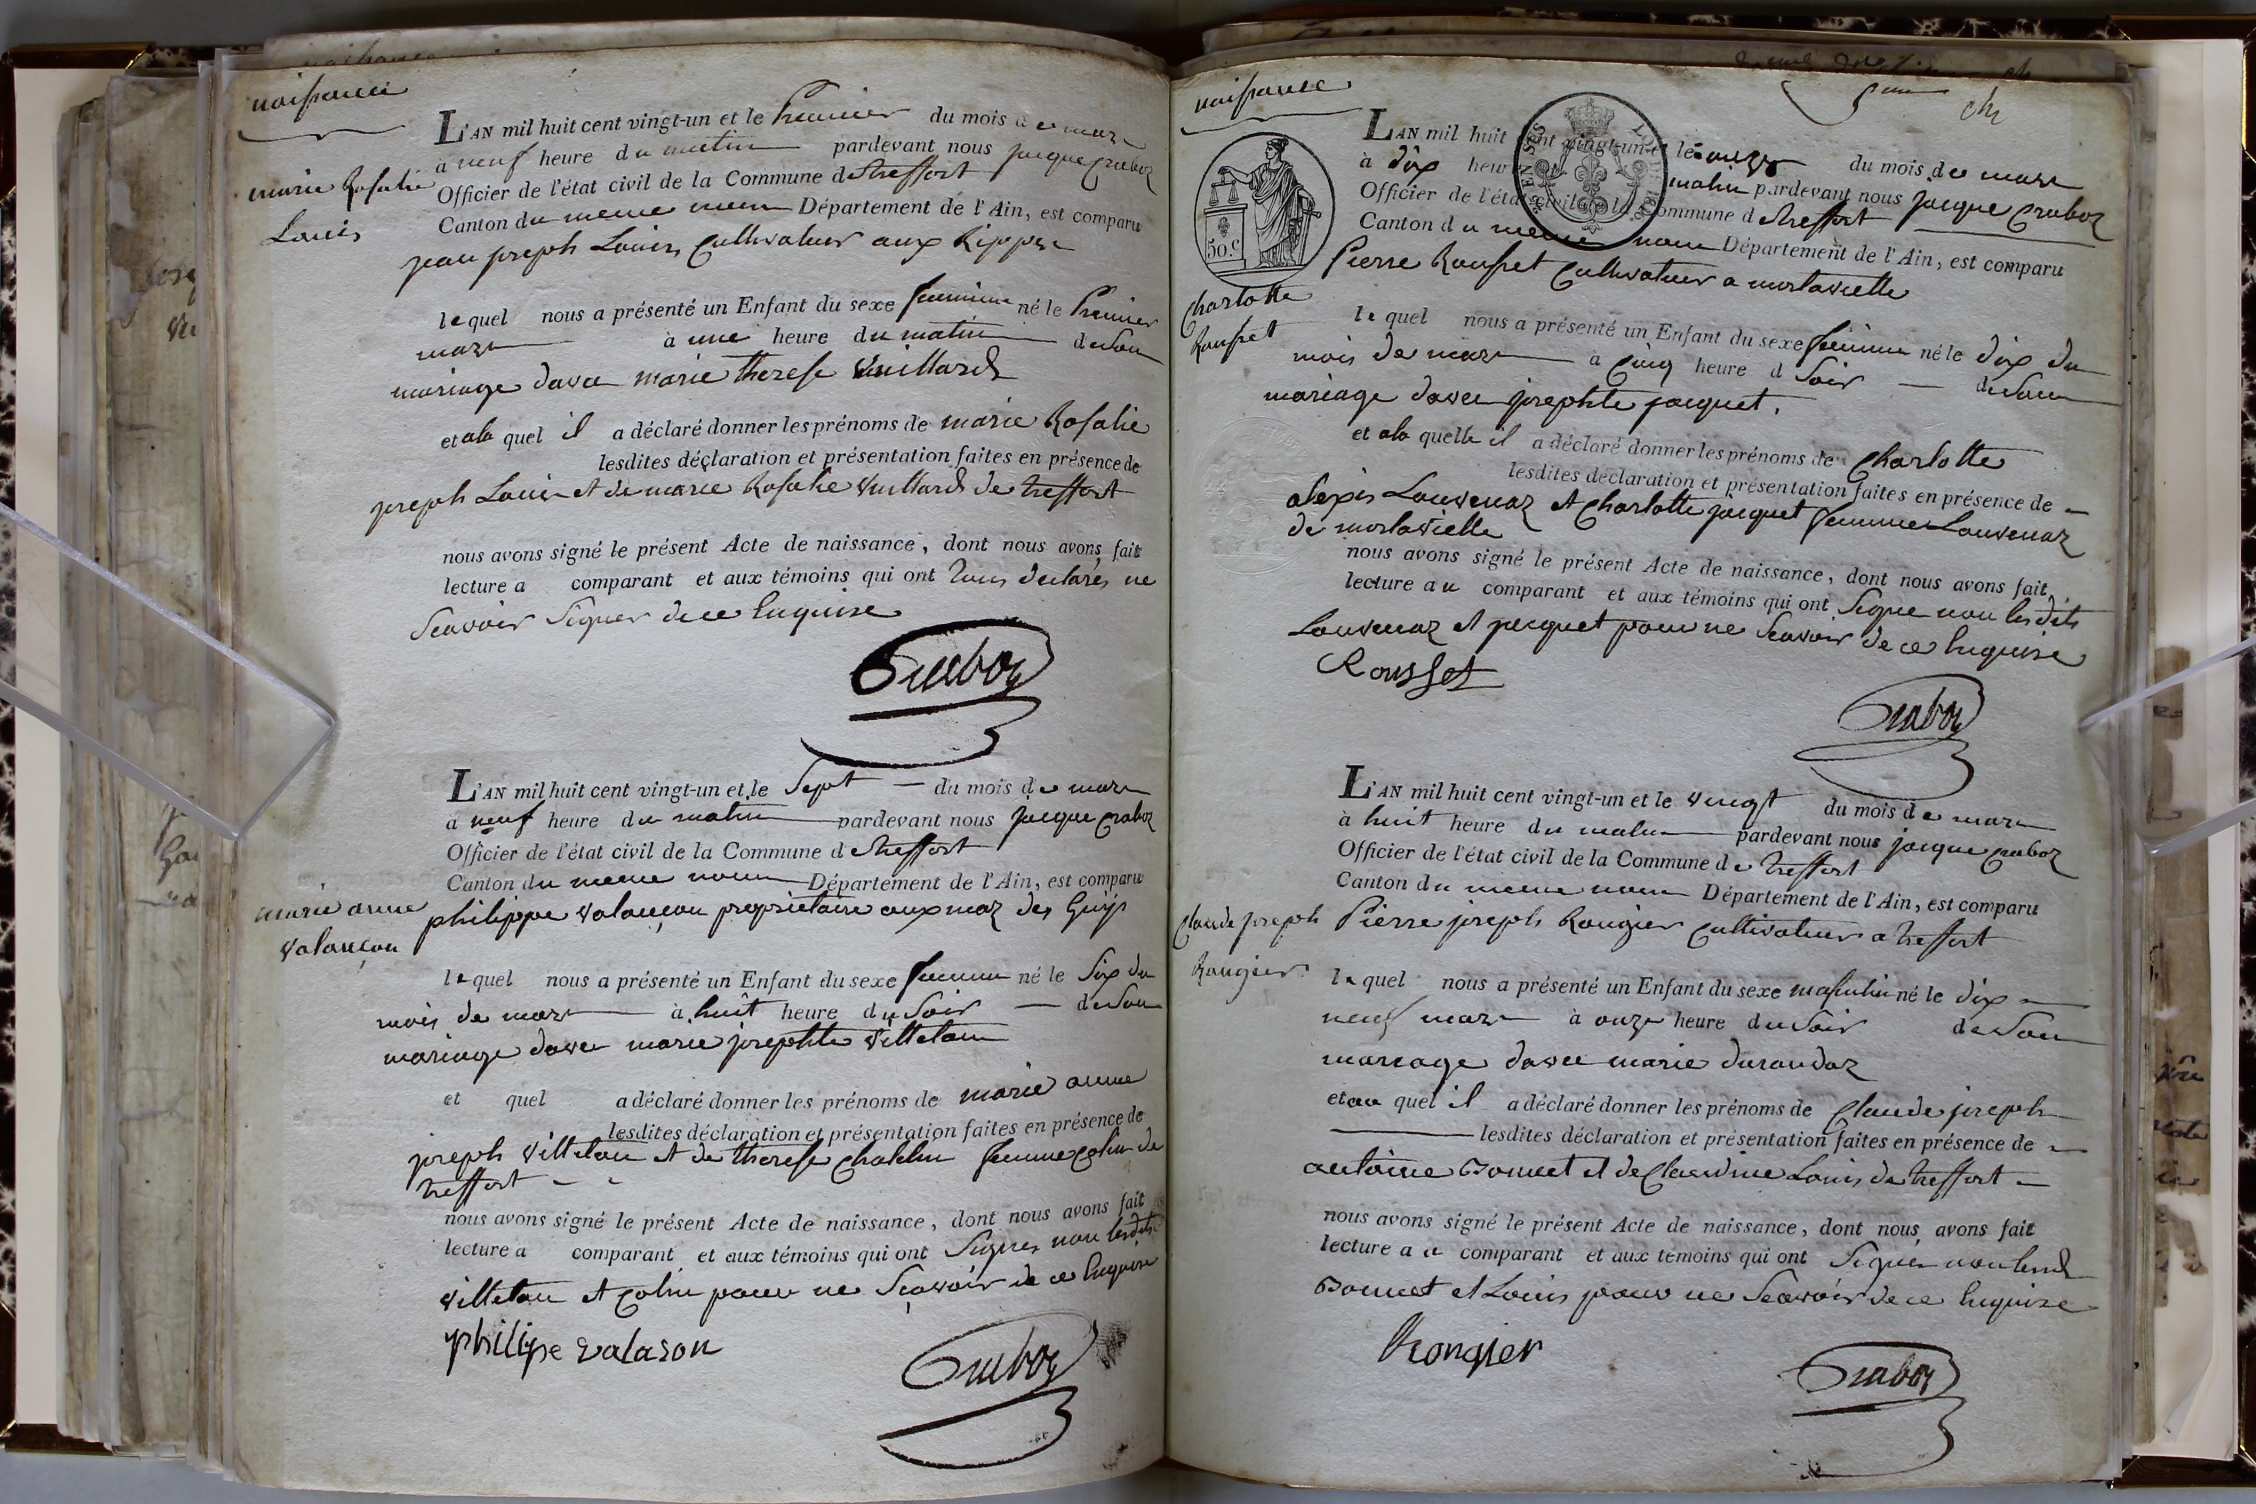 naissance
L'AN mil huit cent vingt-un et le Premier du mois de mars
à neuf heure du matin pardevant nous jacque Craboz
Officier de l'état civil de la Commune de treffort
Canton du meme nom Département de l'Ain, est comparu
marie Rosalie
Louis
jean joseph Louis, Cultivateur aux Rippes
lequel nous a présenté un Enfant du sexe feminin né le Premier
mars à une heure du matin de son
mariage davec marie therese Vuillard
et ala quel il a déclaré donner les prénoms de marie Rosalie
lesdites déclaration et présentation faites en présence de
joseph Louis et de marie Rosalie Vuillard de treffort
nous avons signé le présent Acte de naissance, dont nous avons fait
lecture a comparant et aux témoins qui ont tous declarés ne
Scavoir Signer de ce Enquise
Craboz
L'AN mil huit cent vingt-un et le Sept du mois de mars
à neuf heure du matin pardevant nous jacque Craboz
Officier de l'état civil de la Commune de treffort
Canton du meme nom Département de l'Ain, est comparu
marie anne
Valançon
philippe Valançon proprietaire aux maz des Guys
lequel nous a présenté un Enfant du sexe feminin né le Six du
mois de mars à huit heure du Soir de son
mariage davec marie josephte Villetan
et quel a déclaré donner les prénoms de marie anne
lesdites déclaration et présentation faites en présence de
joseph Villetan et de therese femme Colin de
treffort
nous avons signé le présent Acte de naissance, dont nous avons fait
lecture a comparant et aux témoins qui ont Signés non lesdits
Villetan et Colin pour ne Scavoir de ce Enquise
philipe valason
Craboz
naissance
50.c
L'AN mil huit cent vingt-un et le onze du mois de mars
à dix heure matin pardevant nous jacque Craboz
Officier de l'état civil de la Commune de treffort
Canton du meme nom Département de l'Ain, est comparu
Pierre Rousset Cultivateur a morlavielle
Charlotte
Rousset
lequel nous a présenté un Enfant du sexe feminin né le dix du
mois de mars à Cinq heure d Soir de son
mariage davec josephte jacquet.
et ala quelle il a déclaré donner les prénoms de Charlotte
lesdites déclaration et présentation faites en présence de
alexis Louvenaz et Charlotte jacquet femme Louvenaz
de morlavielle
nous avons signé le présent Acte de naissance, dont nous avons fait
lecture au comparant et aux témoins qui ont Signe non lesdits
Louvenaz et jacquet pour ne Scavoir de ce Enquise
Rousset
Craboz
L'AN mil huit cent vingt-un et le vingt du mois de mars
à huit heure du matin pardevant nous jacque Craboz
Officier de l'état civil de la Commune de treffort
Canton du meme nom Département de l'Ain, est comparu
Claude joseph
Rougier
Pierre joseph Rougier Cultivateur a treffort
lequel nous a présenté un Enfant du sexe masculin né le dix
neuf mars à onze heure du Soir de son
mariage davec marie durandaz
et au quel il a déclaré donner les prénoms de Claude joseph
lesdites déclaration et présentation faites en présence de
antoine Bonnet et de Claudine Louis de treffort
nous avons signé le présent Acte de naissance, dont nous avons fait
lecture au comparant et aux témoins qui ont Signé non lesd
Bonnet et Louis pour ne Scavoir de ce Enquise
Rougier
Craboz